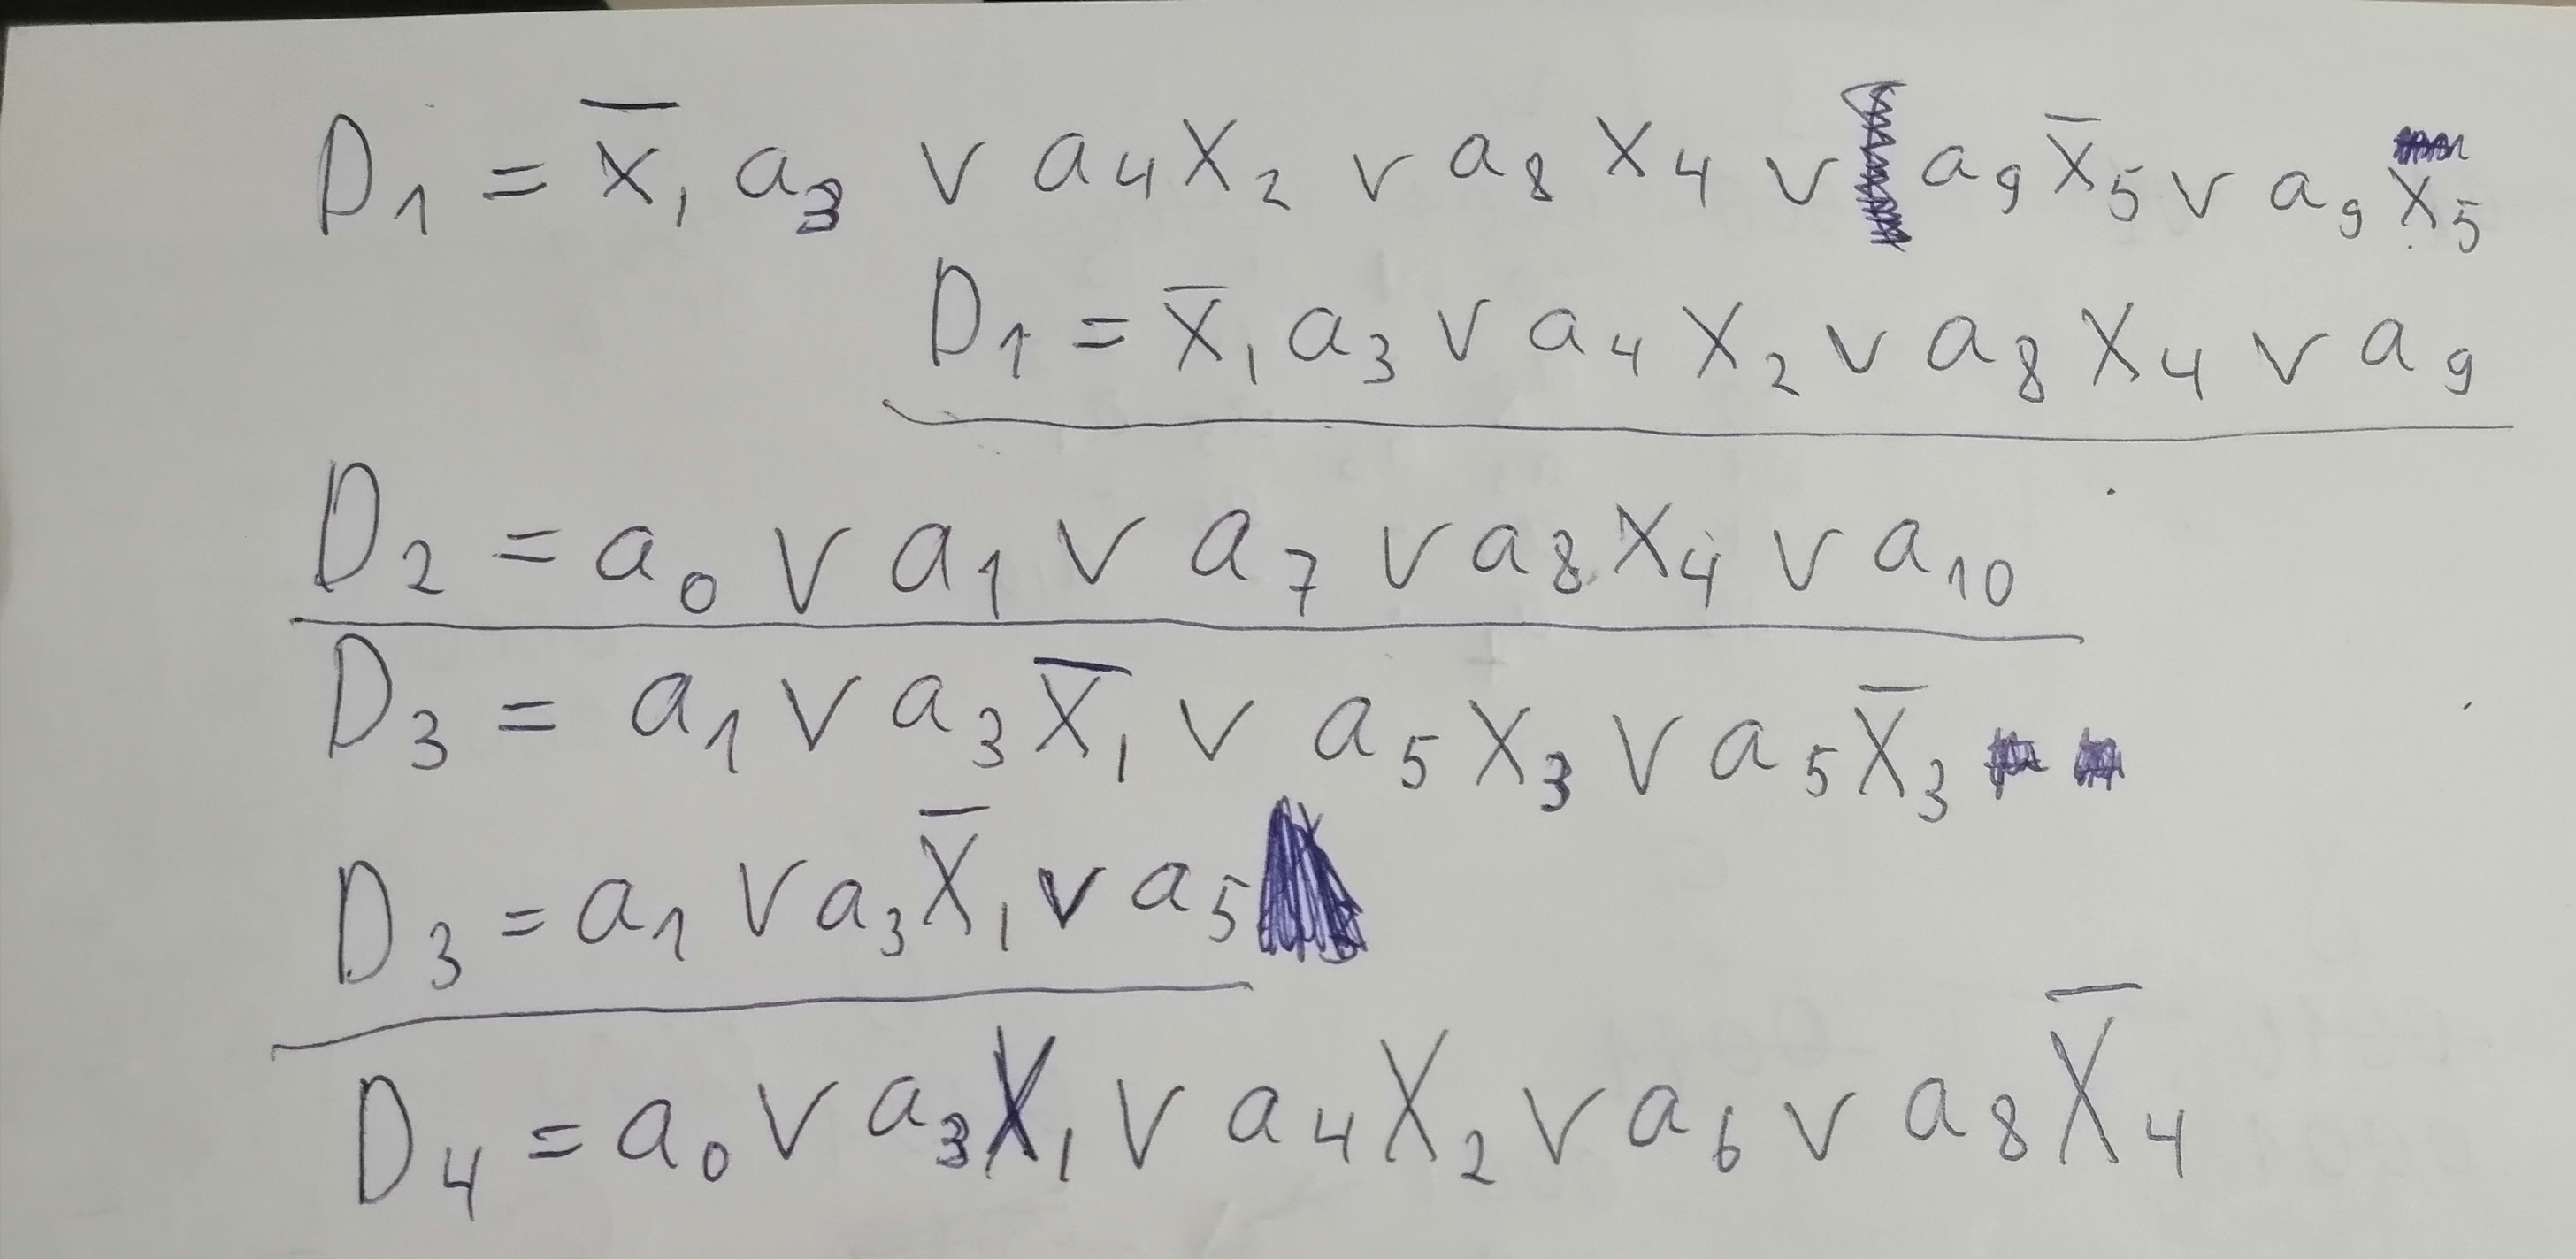 D₁ = x̅₁ a₃ ∨ a₄ x₂ ∨ a₈ x₄ ∨ a₉ x̅₅ ∨ a₉ x₅
D₁ = x̅₁ a₃ ∨ a₄ x₂ ∨ a₈ x₄ ∨ a₉
D₂ = a₀ ∨ a₁ ∨ a₇ ∨ a₈ x₄ ∨ a₁₀
D₃ = a₁ ∨ a₃ x̅₁ ∨ a₅ x₃ ∨ a₅ x̅₃
D₃ = a₁ ∨ a₃ x̅₁ ∨ a₅
D₄ = a₀ ∨ a₃ x₁ ∨ a₄ x₂ ∨ a₆ ∨ a₈ x̅₄